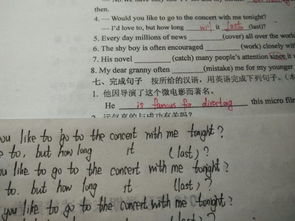 4. — Would you like to go to the concert with me tonight?
— I'd love to, but how long will it last (last)?
5. Every day millions of news (cover) all over the world
6. The shy boy is often encouraged (work) closely with
7. His novel (catch) many people's attention since it
8. My dear granny often (mistake) me for my younger
七、完成句子 按所给的汉语,用英语完成下列句子。
1. 他因导演了这个微电影而著名。
He is famous for directing this micro film
2.
you like to go to the concert with me tonight?
e to, but how long it (last)?
u like to go to the concert with me tonight?
to. but how long it (last)?
you like to go to the concert with me tonight?